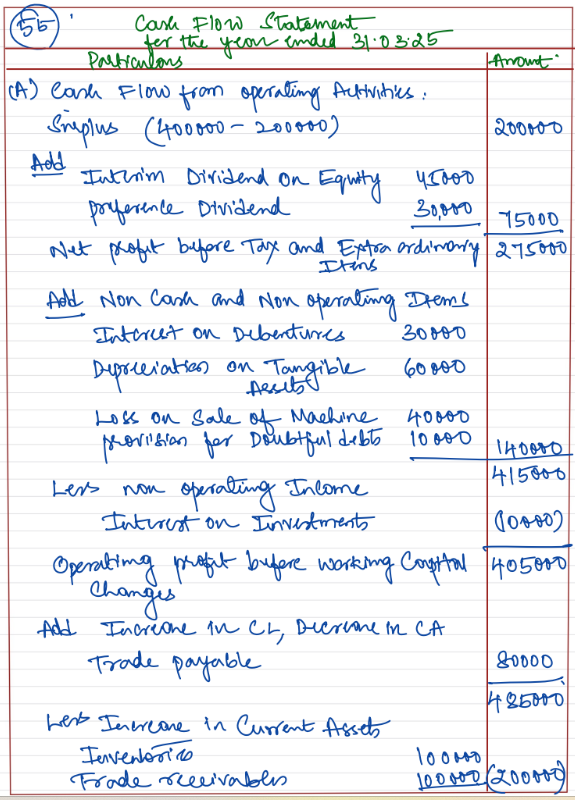 55
Cash Flow Statement
for the year ended 31.03.25
Particulars Amount
(A) Cash Flow from operating Activities:
Surplus (400000 - 200000) 200000
Add
Interim Dividend on Equity 45000
preference Dividend 30,000 75000
Net profit before Tax and Extra ordinary 275000
Items
Add Non Cash and Non operating Items
Interest on Debentures 30000
Depreciation on Tangible 60000
Assets
Loss on Sale of Machine 40000
provision for Doubtful debts 10000 140000
415000
Less non operating Income
Interest on Investments (10000)
Operating profit before working Capital 405000
Changes
Add Increase in CL, Decrease in CA
Trade payable 80000
485000
Less Increase in Current Assets
Inventories 100000
Trade receivables 100000 (200000)